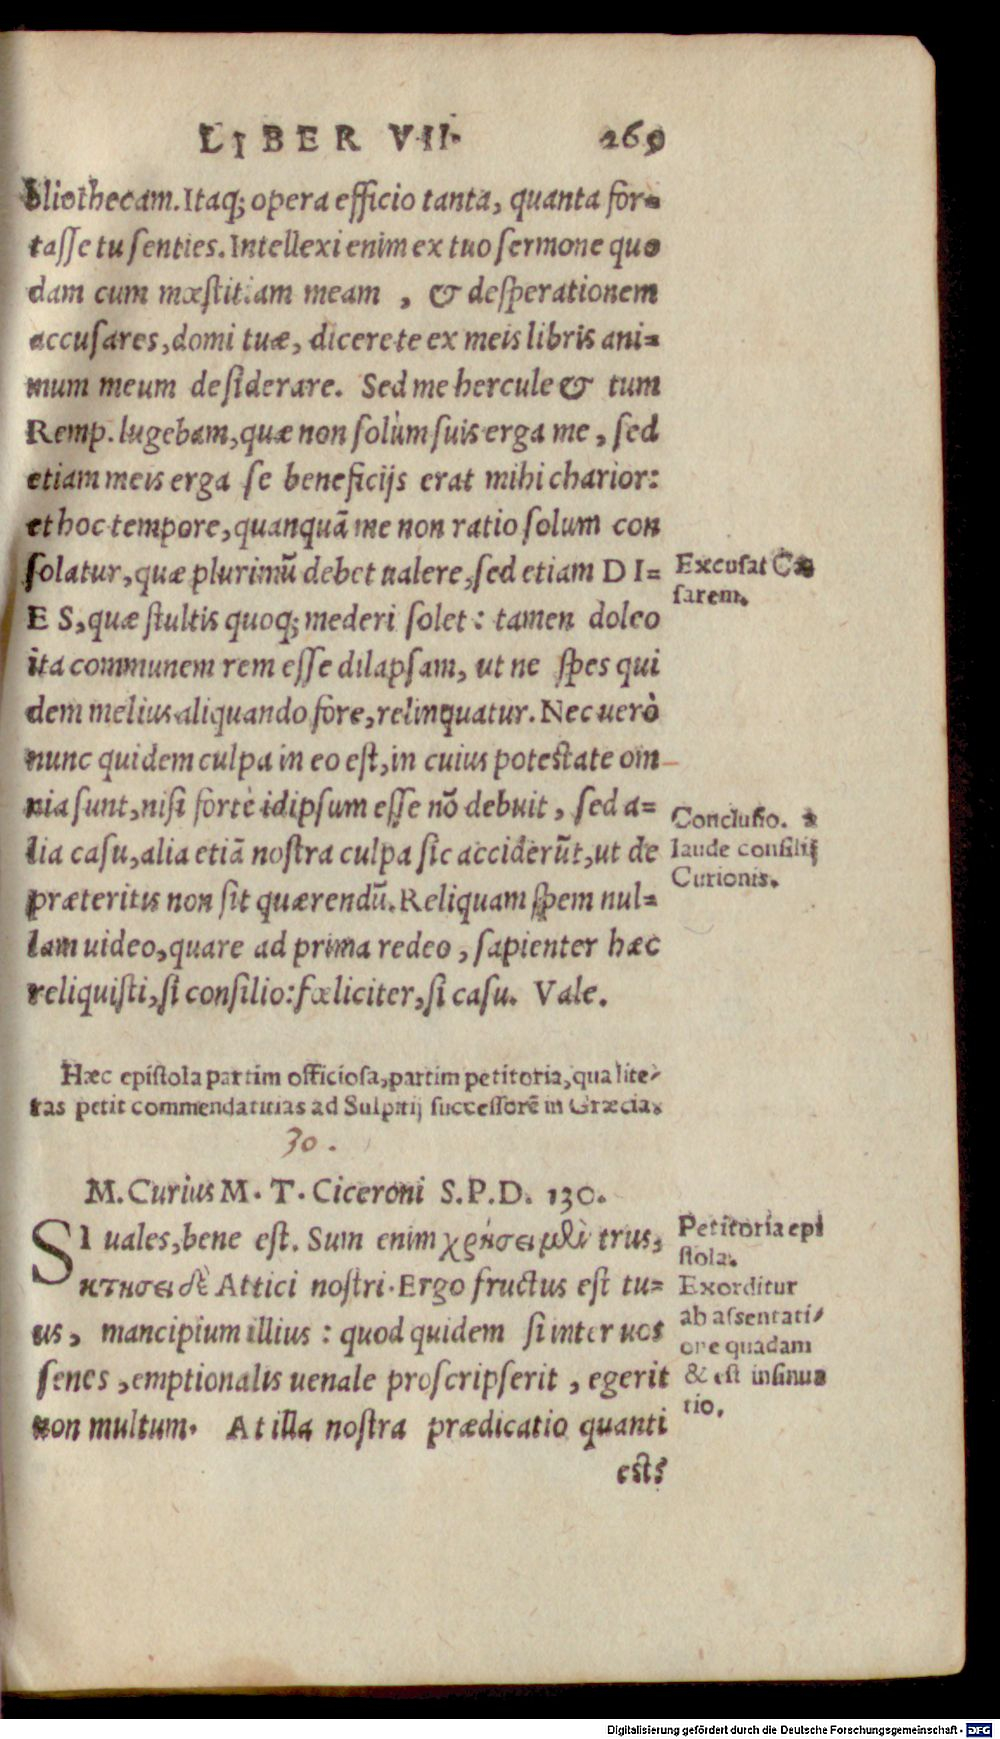 LIBER VII. 269
bliothecam. Itaq; opera efficio tanta, quanta for=
tasse tu senties. Intellexi enim ex tuo sermone quo
dam cum mœstitiam meam, & desperationem
accusares, domi tuæ, dicere te ex meis libris ani=
mum meum desiderare. Sed me hercule & tum
Remp. lugebam, quæ non solùm suis erga me, sed
etiam meis erga se beneficijs erat mihi charior:
et hoc tempore, quanquã me non ratio solum con
solatur, quæ plurimũ debet ualere, sed etiam DI=
ES, quæ stultis quoq; mederi solet: tamen doleo
ita communem rem esse dilapsam, ut ne spes qui
dem melius aliquando fore, relinquatur. Nec uerò
nunc quidem culpa in eo est, in cuius potestate om
nia sunt, nisi fortè id ipsum esse nõ debuit, sed a=
lia casu, alia etiã nostra culpa sic acciderũt, ut de
præteritis non sit quærendũ. Reliquam spem nul=
lam uideo, quare ad prima redeo, sapienter hæc
reliquisti, si consilio: fœliciter, si casu. Vale.
Excusat Cæ
sarem.
Conclusio. à
laude consilij
Curionis.
Hæc epistola partim officiosa, partim petitoria, qua lite-
ras petit commendatitias ad Sulpitij successorẽ in Græcia.
30.
M. Curius M. T. Ciceroni S. P. D. 130.
SI uales, bene est. Sum enim χρήσει μὲν tuus,
κτήσει δὲ Attici nostri. Ergo fructus est tu=
us, mancipium illius: quod quidem si inter uos
senes, emptionalis uenale proscripserit, egerit
non multum. At illa nostra prædicatio quanti
est?
Petitoria epi
stola.
Exorditur
ab assentati-
one quadam
& est insinua
tio.
Digitalisierung gefördert durch die Deutsche Forschungsgemeinschaft - DFG